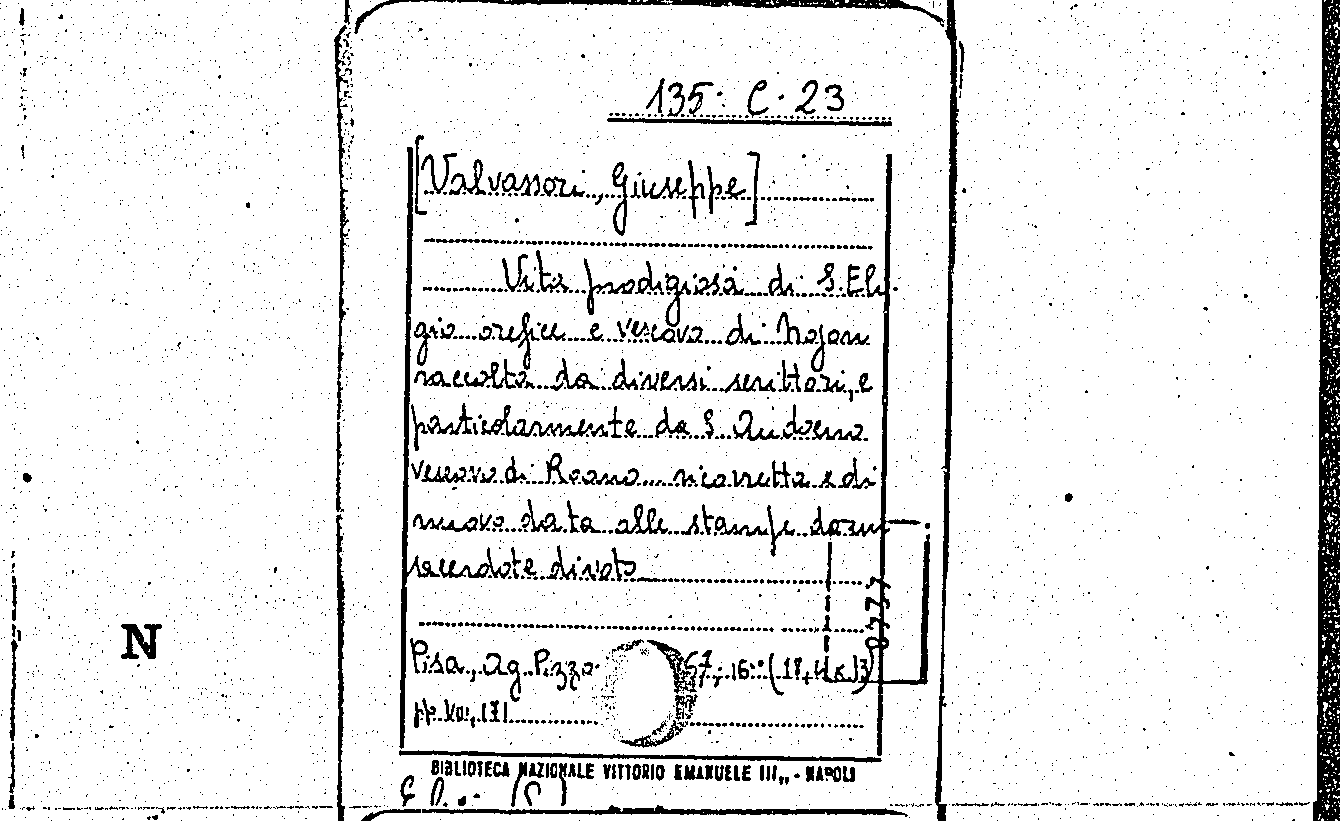 135: C. 23
[Valvassori, Giuseppe]
Vita prodigiosa di S. Eli-
gio orefice e vescovo di Nojon
raccolta da diversi scrittori, e
particolarmente da S. Audoeno
vescovo di Roano... ricorretta e di
nuovo data alle stampe da un
sacerdote divoto
Pisa, Ag. Pizzo 57, 16°
pp. VIII, 171
N
BIBLIOTECA NAZIONALE VITTORIO EMANUELE III„ - NAPOLI